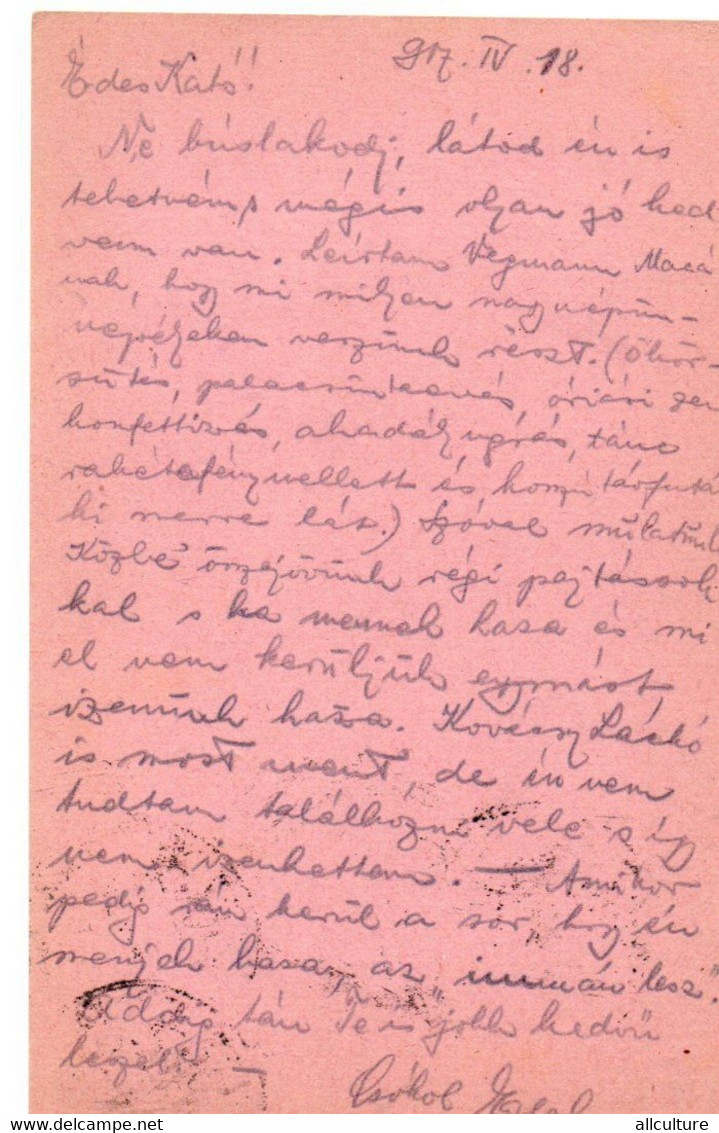 Édes Kató! 917. IV. 18.
Ne búslakodj, látod én is
mégis olyan jó ked
vem van. Leírtam Vegmann Macá
nak, hogy mi milyen nagy népün-
nepélyeken veszünk részt. (ökör-
sütés, óriási zen
konfettizás, akadályugrás, tánc
rakétafény mellett és, hosszú távfutá
ki merre lát.) Szóval mulatunk
Közbe összejövünk régi pajtások
kal s ha mennek haza és mi
el nem kerüljük egymást,
izenünk haza. Kovácsy László
is most ment, de én nem
tudtam találkozni vele s így
nem izenhettem. — Amikor
pedig rám kerül a sor, hogy én
menjek haza, az „ lesz".
Addig tán Te is jobb kedvű
leszel. —
Csókol
© delcampe.net
allculture